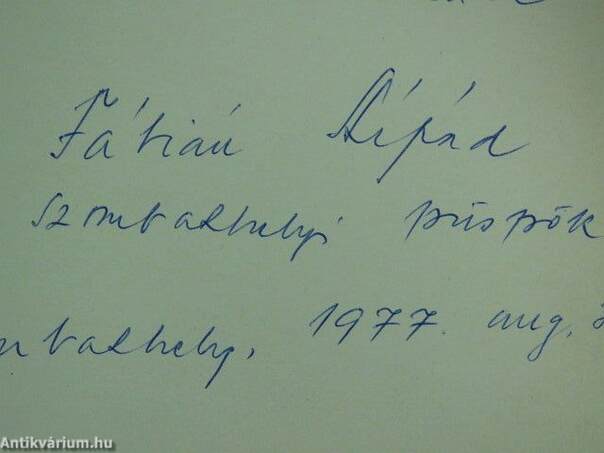 Fábián Árpád
szombathelyi püspök
mbathely, 1977. aug.
Antikvárium.hu